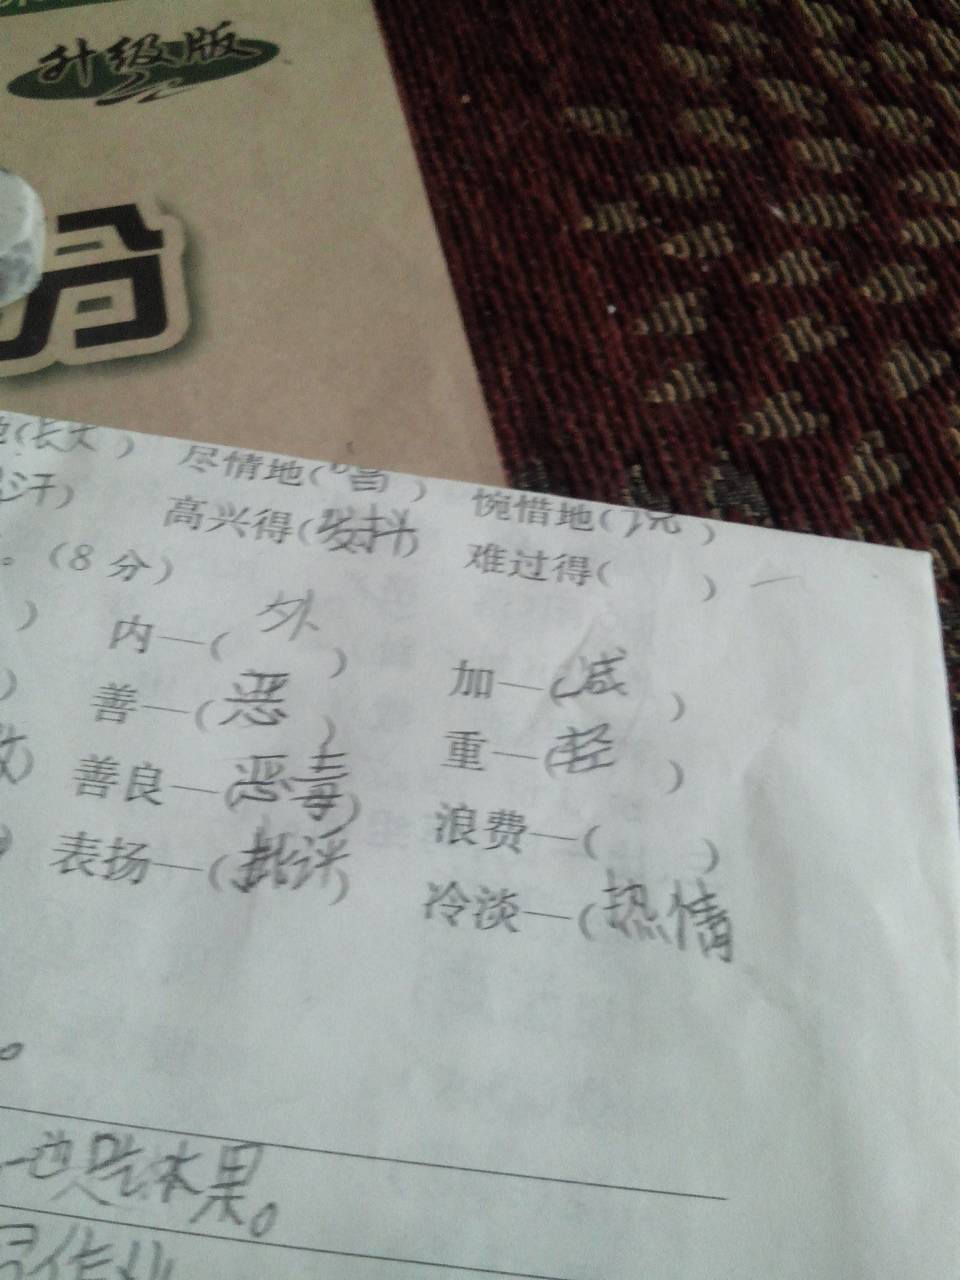 升级版
地(长大) 尽情地(唱) 惋惜地(说)
汗) 高兴得(发抖) 难过得( )
。(8分)
) 内—(外) 加—(减)
) 善—(恶) 重—(轻)
) 善良—(恶毒) 浪费—( )
表扬—(批评) 冷淡—(热情
。
一边吃水果。
作业